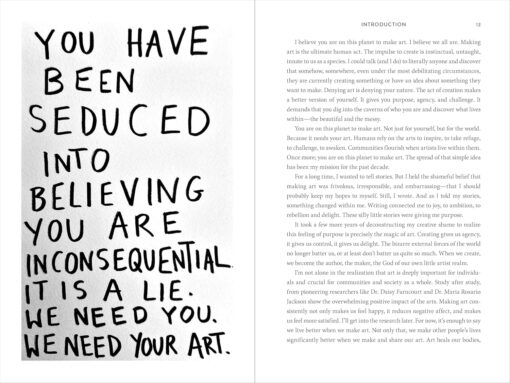 YOU HAVE
BEEN
SEDUCED
INTO
BELIEVING
YOU ARE
INCONSEQUENTIAL.
IT IS A LIE.
WE NEED YOU.
WE NEED YOUR ART.
INTRODUCTION 13
I believe you are on this planet to make art. I believe we all are. Making
art is the ultimate human act. The impulse to create is instinctual, untaught,
innate to us as a species. I could talk (and I do) to literally anyone and discover
that somehow, somewhere, even under the most debilitating circumstances,
they are currently creating something or have an idea about something they
want to make. Denying art is denying your nature. The act of creation makes
a better version of yourself. It gives you purpose, agency, and challenge. It
demands that you dig into the caverns of who you are and discover what lives
within—the beautiful and the messy.
You are on this planet to make art. Not just for yourself, but for the world.
Because it needs your art. Humans rely on the arts to inspire, to take refuge,
to challenge, to awaken. Communities flourish when artists live within them.
Once more: you are on this planet to make art. The spread of that simple idea
has been my mission for the past decade.
For a long time, I wanted to tell stories. But I held the shameful belief that
making art was frivolous, irresponsible, and embarrassing—that I should
probably keep my hopes to myself. Still, I wrote. And as I told my stories,
something changed within me. Writing connected me to joy, to ambition, to
rebellion and delight. These silly little stories were giving me purpose.
It took a few more years of deconstructing my creative shame to realize
this feeling of purpose is precisely the magic of art. Creating gives us agency,
it gives us control, it gives us delight. The bizarre external forces of the world
no longer batter us, or at least don't batter us quite so much. When we create,
we become the author, the maker, the God of our own little artist realm.
I'm not alone in the realization that art is deeply important for individu-
als and crucial for communities and society as a whole. Study after study,
from pioneering researchers like Dr. Daisy Fancourt and Dr. Maria Rosario
Jackson show the overwhelming positive impact of the arts. Making art con-
sistently not only makes us feel happy, it reduces negative affect, and makes
us feel more satisfied. I'll get into the research later. For now, it's enough to say
we live better when we make art. Not only that, we make other people's lives
significantly better when we make and share our art. Art heals our bodies,